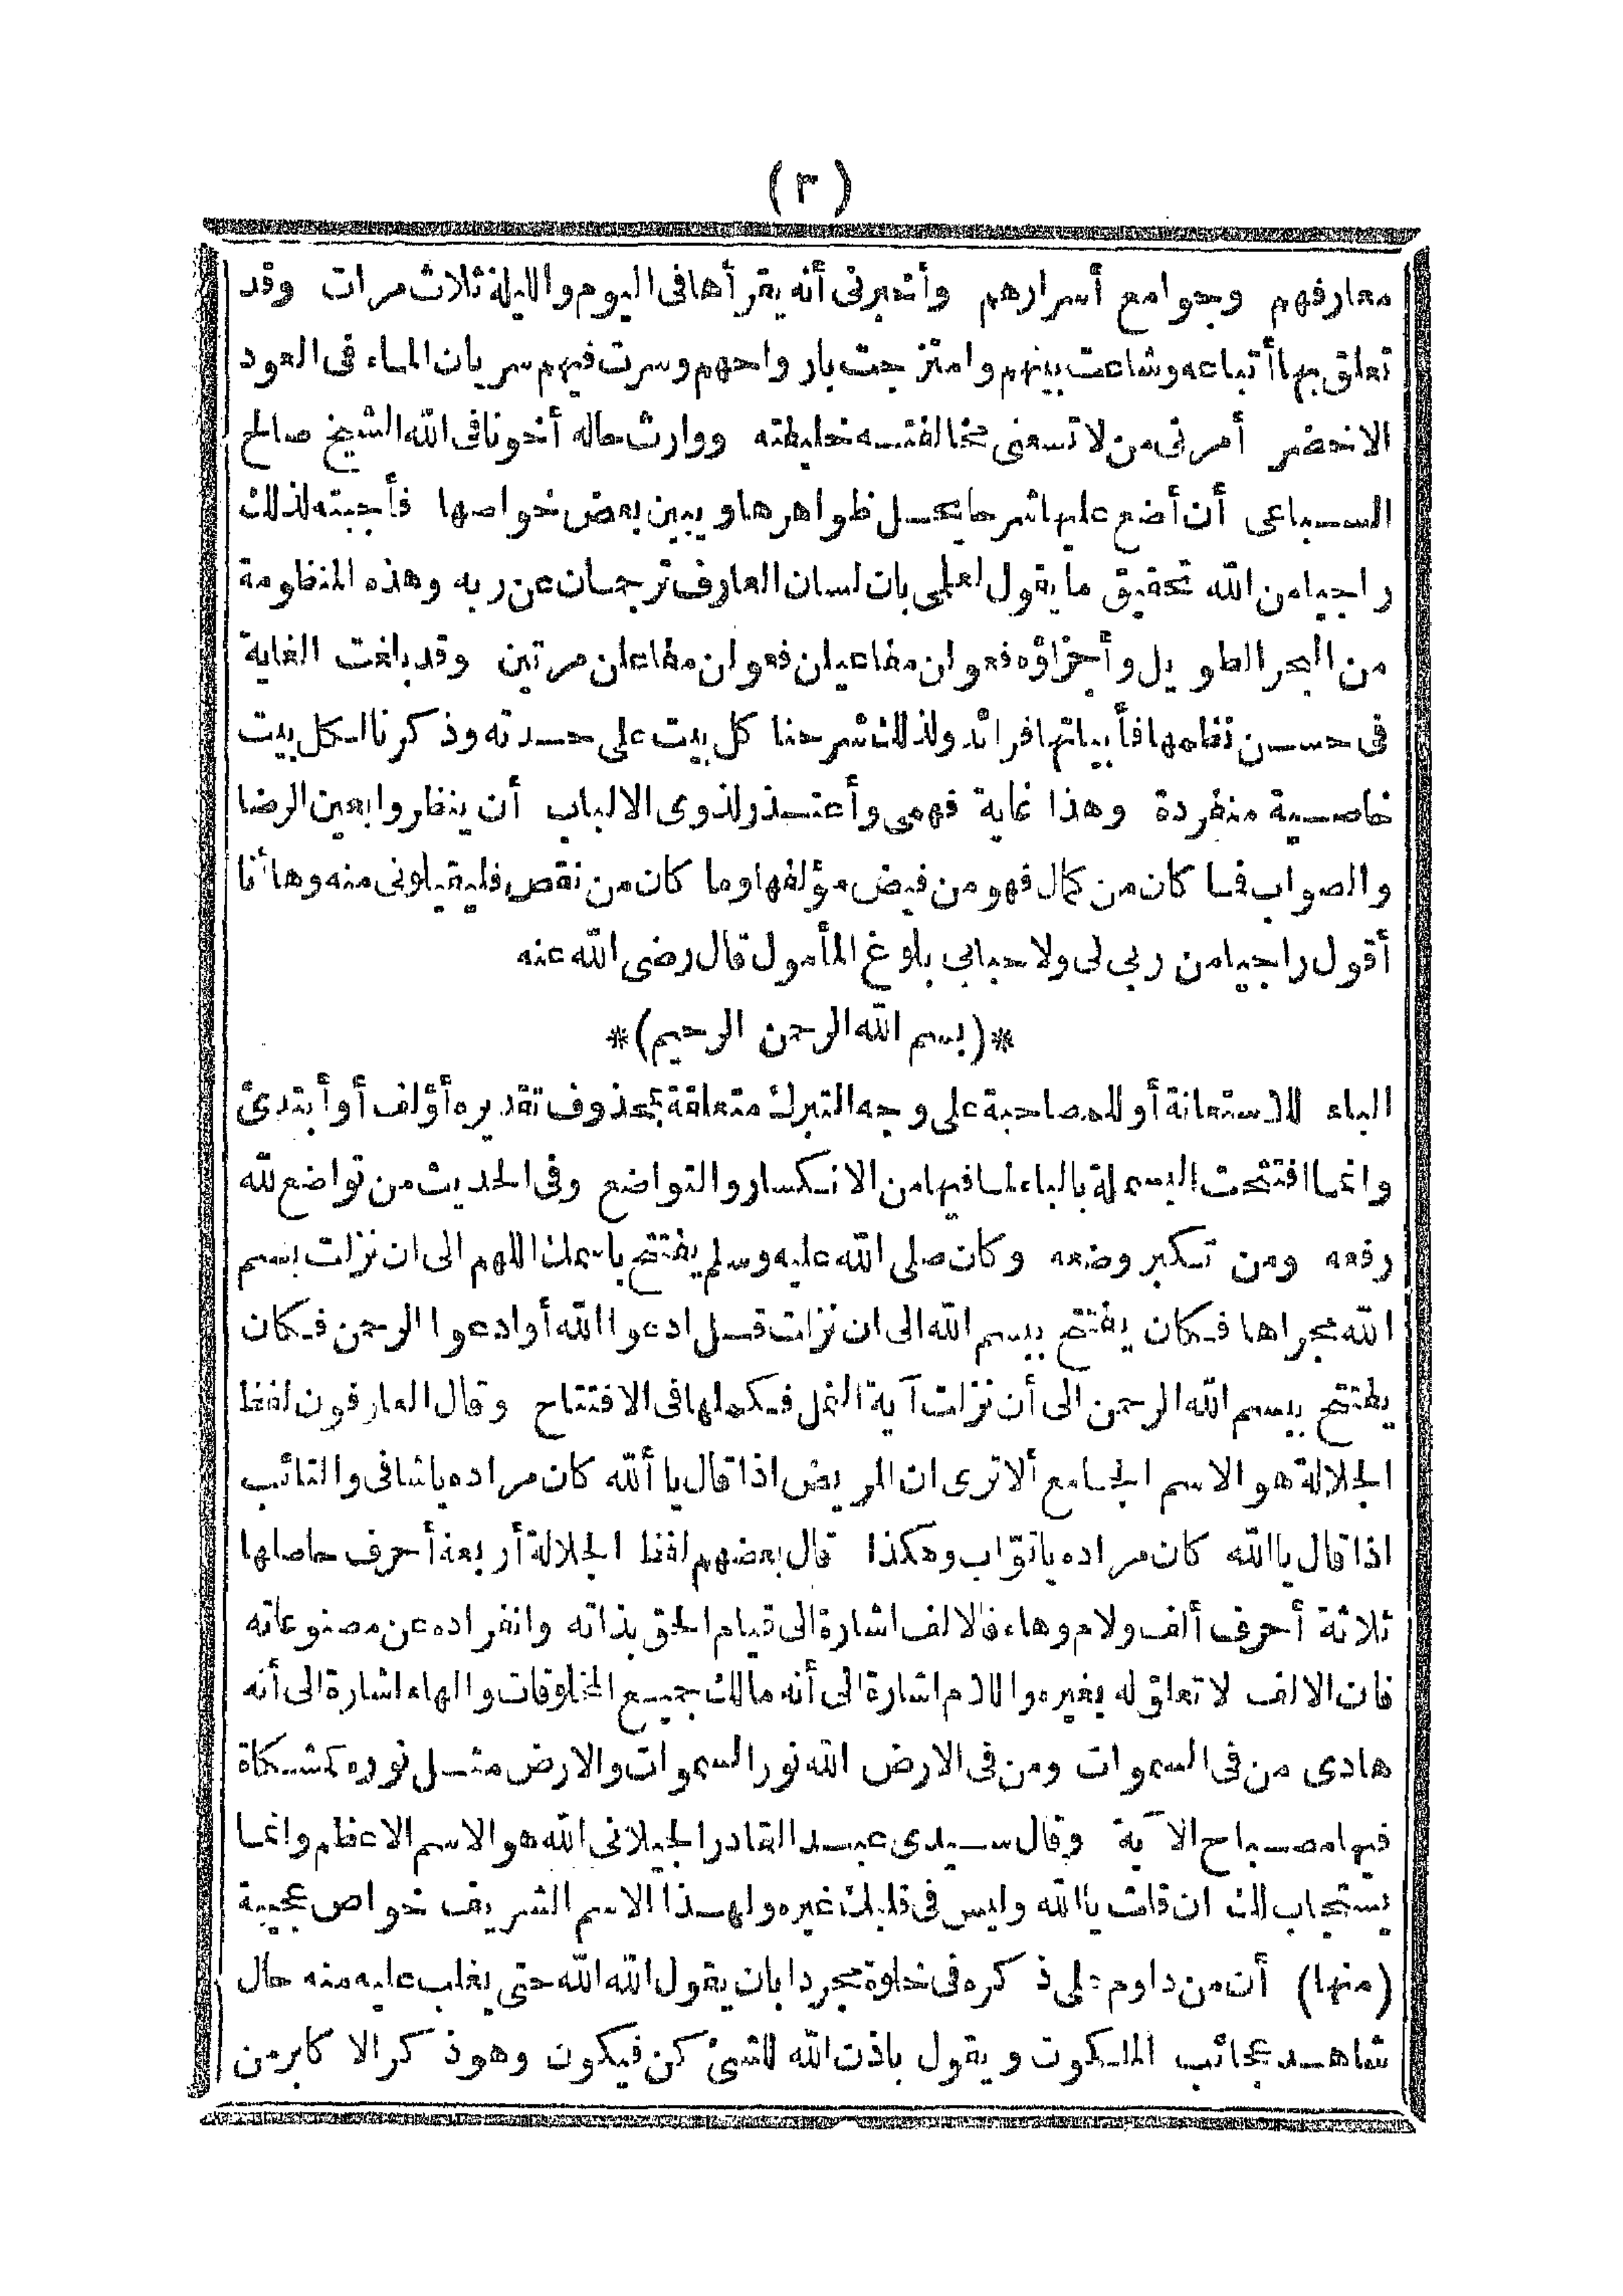 (٣)
معارفهم وجوامع أسرارهم وأخبرنى أنه يقرأها فى اليوم والليلة ثلاث مرات وقد
تعلق بها أتباعه وشاعت بينهم وامتزجت بارواحهم وسرت فيهم سريان الماء فى العود
الاخضر أمرنى من لا تسعنى مخالفته خليفته ووارث حاله أخونا فى الله الشيخ صالح
السباعى أن أضع عليها شرحا يحل ظواهرها ويبين بعض خواصها فأجبته لذلك
راجيا من الله تحقيق ما يقول لعلمى بان لسان العارف ترجمان عن ربه وهذه المنظومة
من البحر الطويل وأجزاؤه فعولن مفاعيلن فعولن مفاعلن مرتين وقد بلغت الغاية
فى حسن نظامها فأبياتها فرائد ولذلك شرحنا كل بيت على حدته وذكرنا لكل بيت
خاصية منفردة وهذا غاية فهمى وأعتذر لذوى الالباب أن ينظروا بعين الرضا
والصواب فما كان من كمال فهو من فيض مؤلفها وما كان من نقص فليقيلونى منه وها أنا
أقول راجيا من ربى لى ولاحبابى بلوغ المأمول قال رضى الله عنه
*(بسم الله الرحمن الرحيم)*
الباء للاستعانة أو للمصاحبة على وجه التبرك متعلقة بمحذوف تقديره أؤلف أو أبتدئ
وانما افتتحت البسملة بالباء لما فيها من الانكسار والتواضع وفى الحديث من تواضع لله
رفعه ومن تكبر وضعه وكان صلى الله عليه وسلم يفتتح باسمك اللهم الى ان نزلت بسم
الله مجراها فكان يفتتح ببسم الله الى ان نزلت قل ادعوا الله أو ادعوا الرحمن فكان
يفتتح ببسم الله الرحمن الى أن نزلت آية النمل فكملها فى الافتتاح وقال العارفون لفظ
الجلالة هو الاسم الجامع ألا ترى ان المريض اذا قال يا ألله كان مراده يا شافى والتائب
اذا قال يا الله كان مراده يا توّاب وهكذا قال بعضهم لفظ الجلالة أربعة أحرف حاصلها
ثلاثة أحرف ألف ولام وهاء فالالف اشارة الى قيام الحق بذاته وانفراده عن مصنوعاته
فان الالف لا تعلق له بغيره واللام اشارة الى أنه مالك جميع المخلوقات والهاء اشارة الى أنه
هادى من فى السموات ومن فى الارض الله نور السموات والارض مثل نوره كمشكاة
فيها مصباح الآية وقال سيدى عبد القادر الجيلانى الله هو الاسم الاعظم وانما
يستجاب لك ان قلت يا الله وليس فى قلبك غيره ولهذا الاسم الشريف خواص عجيبة
(منها) أن من داوم على ذكره فى خلوة مجردا بان يقول الله الله حتى يغلب عليه منه حال
شاهد عجائب الملكوت ويقول باذن الله للشئ كن فيكون وهو ذكر الاكابر من